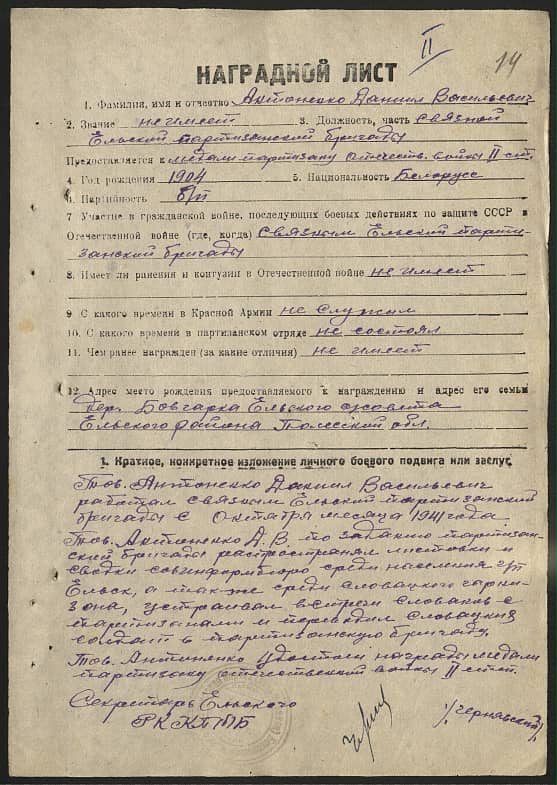 II
14
НАГРАДНОЙ ЛИСТ
1. Фамилия, имя и отчество Антоненко Даниил Васильевич
2. Звание не имеет 3. Должность, часть связной
Ельский партизанский бригады
Предоставляется к медали партизану отечеств. войны II ст.
4. Год рождения 1904 5. Национальность Белорусс
6. Партийность б/п
7 Участие в гражданской войне, последующих боевых действиях по защите СССР и
Отечественной войне (где, когда) Связным Ельский парти-
занский бригады
8. Имеет ли ранения и контузии в Отечественной войне не имеет
9 С какого времени в Красной Армии не служил
10. С какого времени в партизанском отряде не состоял
11. Чем ранее награжден (за какие отличия) не имеет
12 Адрес место рождения предоставляемого к награждению и адрес его семьи
дер. Бовчарка Ельского с/совета
Ельского района Полесский обл.
1. Краткое, конкретное изложение личного боевого подвига или заслуг
Тов. Антоненко Даниил Васильевич
работал связным Ельский партизанский
бригады с Октября месяца 1941 года.
Тов. Антоненко Д. В. по заданию партизан-
ский бригады распространял листовки и
сводки совинформбюро среди населения г/п
Ельск, а так-же среди словацкого гарни-
зона, устраивал встречи словаков с
партизанами и переводил словацких
солдат в партизанскую бригаду.
Тов. Антоненко Удостоен награды медали
партизану отечественский войны II степ.
Секретарь Ельского
РК КП/б/Б
/Чернявский/